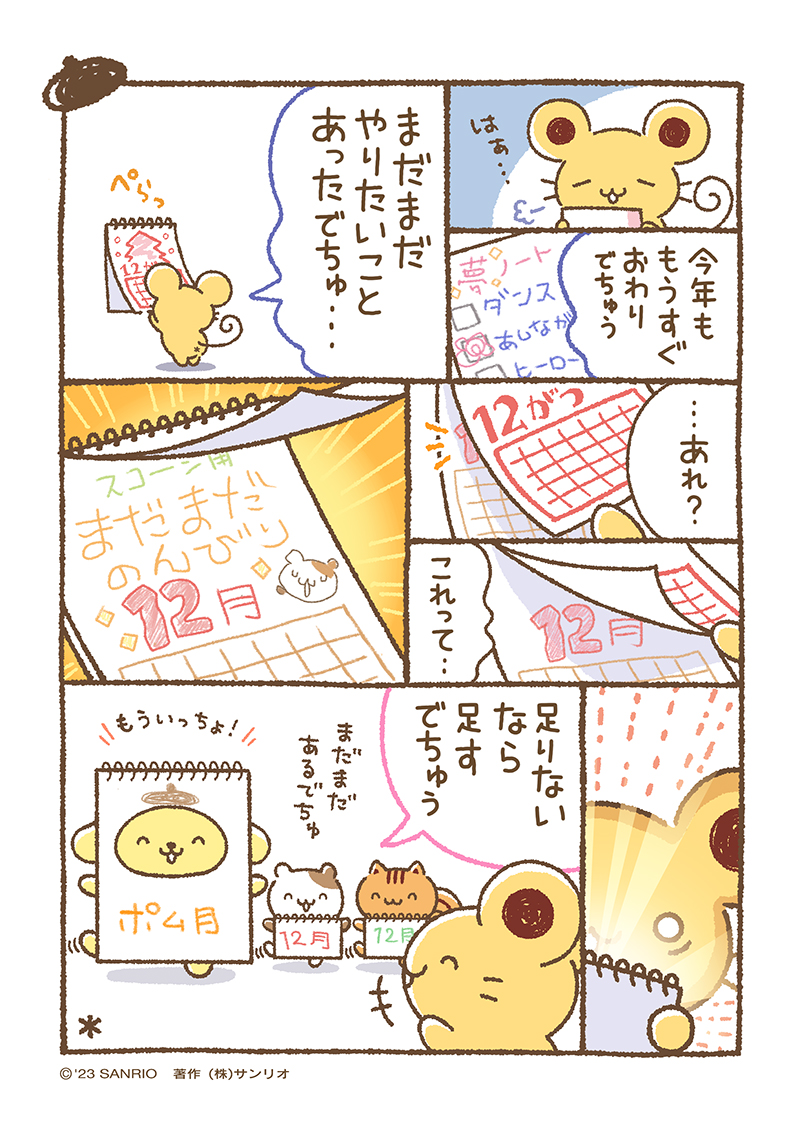 はぁ…
今年も
もうすぐ
おわり
でちゅう
夢ノート
ダンス
あしなが
ヒーロー
まだまだ
やりたいこと
あったでちゅ…
ぺらっ
12がつ
…あれ?
12がつ
これって…
12月
スコーン用
まだまだ
のんびり
12月
足りない
なら
足す
でちゅう
まだまだ
あるでちゅ
もういっちょ!
ポム月
12月
12月
©'23 SANRIO 著作 (株)サンリオ